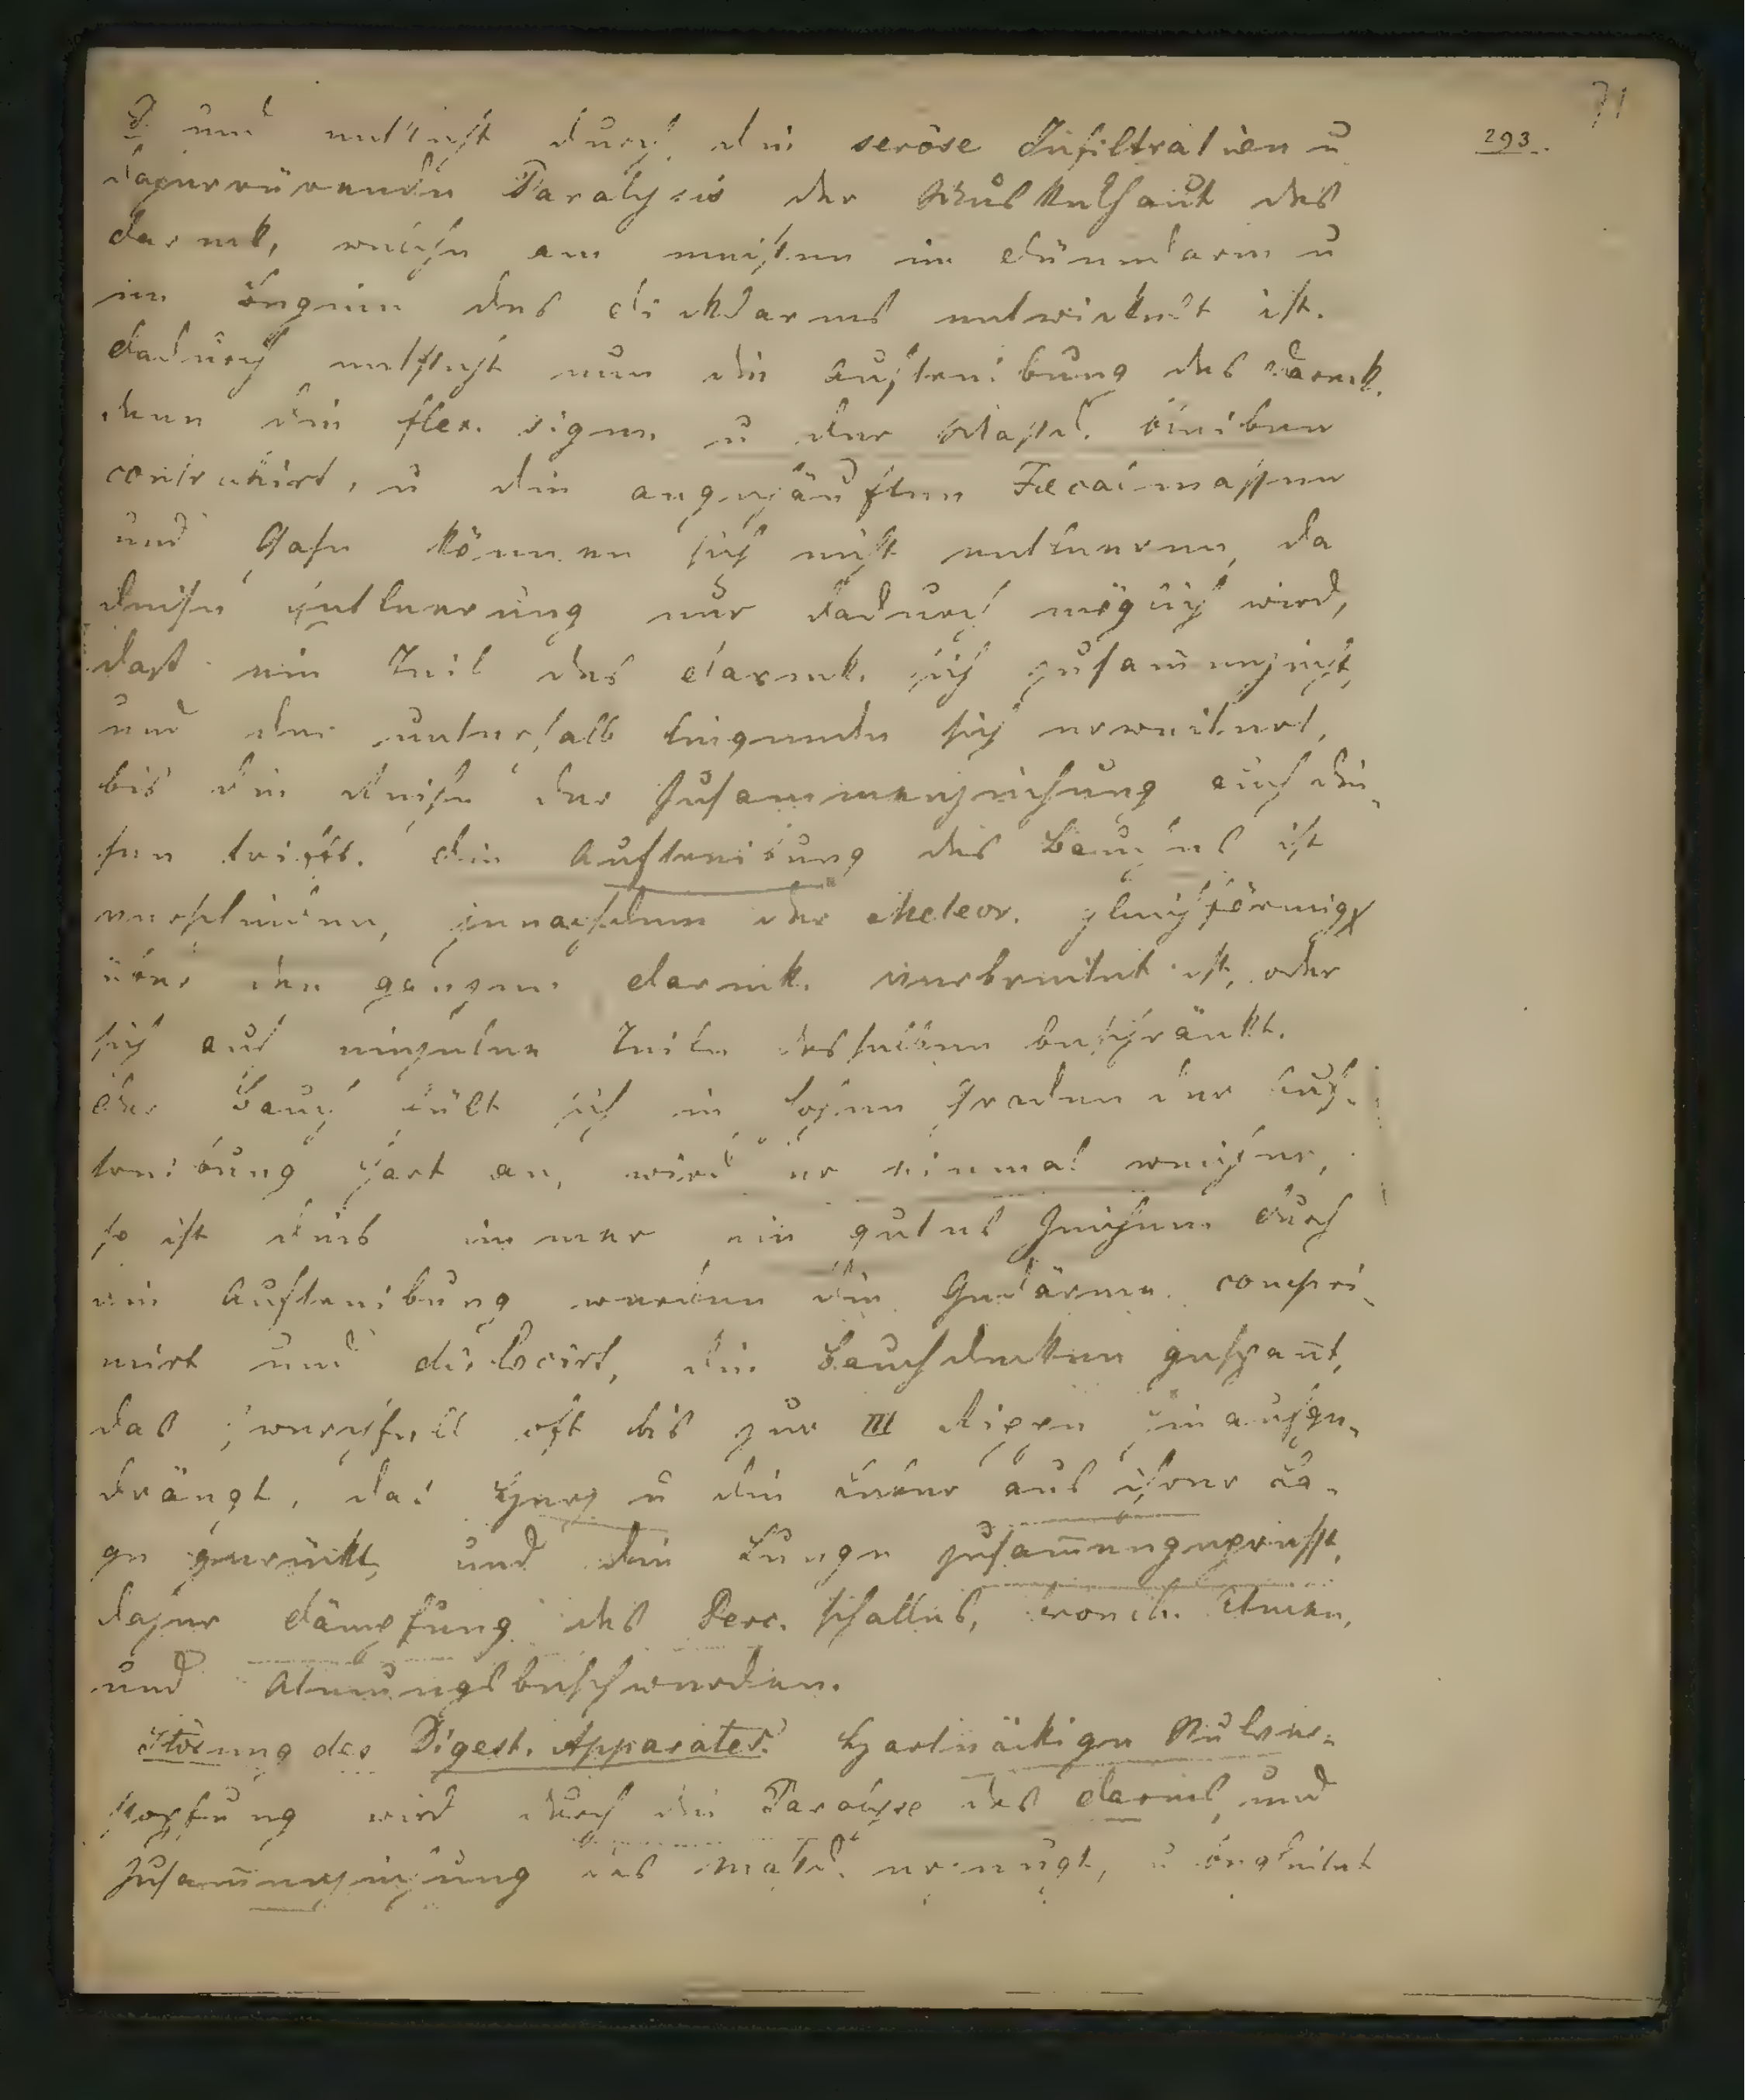 71
293.
und entsteht durch die seröse Infiltration u
daherrürende Paralysis der Muskelhaut des
Darmk, welche am meisten im Dünndarm u
im Beginn des Dickdarms entwickelt ist.
Dadurch entsteht nun die Auftreibung des Darmk.
denn die flex. sigm. u der Mastd. bleiben
contrahirt, u die angehäuften Fæcalmassen
und Gase können sich nicht entleeren, da
diese Entleerung nur dadurch möglich wird,
daß ein Teil des Darmk. sich zusam̅enzieht,
und der unterhalb liegende sich erweitert,
bis die Reihe der Zusammenziehung auch die-
sen trifft. Die Auftreibung des Bauches ist
verschieden, jenachdem der Meteor. gleichförmig
über den ganzen Darmk. verbreitet ist, oder
sich auf einzelne Teile desselben beschränkt.
Der Bauch fült sich in hohen Graden der Auf-
treibung hart an, wird er einmal weicher,
so ist dies immer ein gutes Zeichen. Durch
die Auftreibung werden die Gedärme compri-
mirt und dislocirt, die Bauchdecken gespan̅t,
das Zwerchfell oft bis zur III Rippe hinaufge-
drängt, das Herz u die Leber aus ihrer La-
ge gerückt, und die Lunge zusam̅engepresst,
daher Dämpfung des Perc. schalles, bronch. Atmen,
und Atmungsbeschwerden.
Störung des Digest. Apparates. Hartnäckige Stulver-
stopfung wird durch die Paralyse des Darms, und
Zusam̅enziehung des Mastd. erzeugt, u begleitet